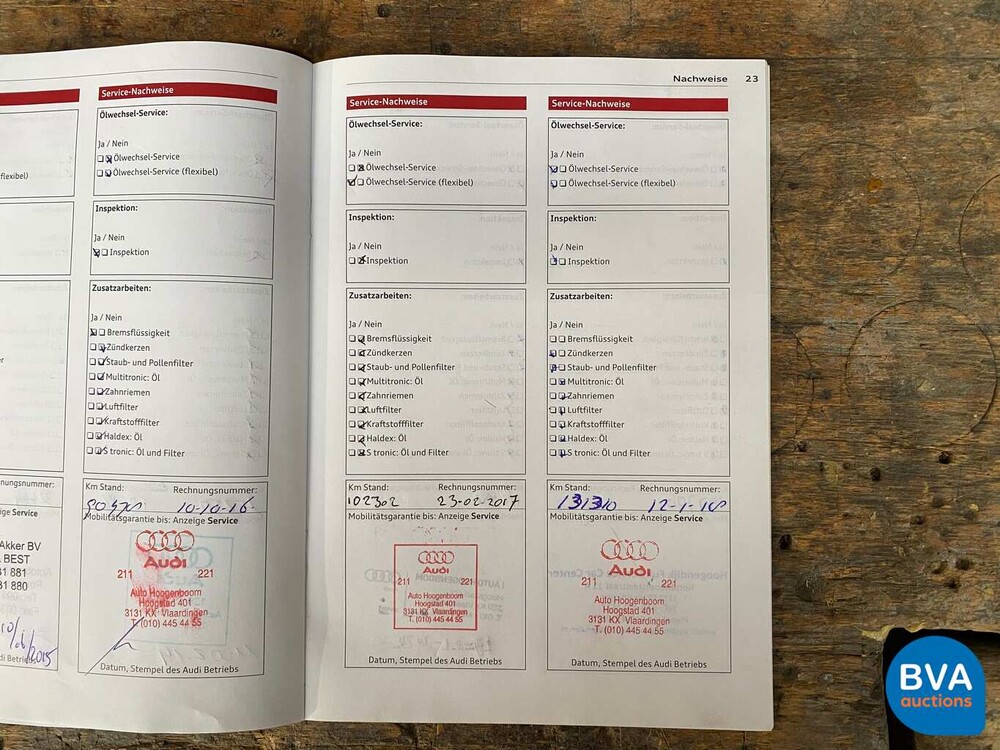 Nachweise 23
flexibel)
Akker BV
BEST
81 881
81 880
10/6/2015
Service-Nachweise
Ölwechsel-Service:
Ja / Nein
Ölwechsel-Service
Ölwechsel-Service (flexibel)
Inspektion:
Ja / Nein
Inspektion
Zusatzarbeiten:
Ja / Nein
Bremsflüssigkeit
Zündkerzen
Staub- und Pollenfilter
Multitronic: Öl
Zahnriemen
Luftfilter
Kraftstofffilter
Haldex: Öl
S tronic: Öl und Filter
Km Stand: Rechnungsnummer:
10-10-16
Mobilitätsgarantie bis: Anzeige Service
Audi
211 221
Auto Hoogenboom
Hoogstad 401
3131 KX Vlaardingen
T. (010) 445 44 55
Datum, Stempel des Audi Betriebs
Service-Nachweise
Ölwechsel-Service:
Ja / Nein
Ölwechsel-Service
Ölwechsel-Service (flexibel)
Inspektion:
Ja / Nein
Inspektion
Zusatzarbeiten:
Ja / Nein
Bremsflüssigkeit
Zündkerzen
Staub- und Pollenfilter
Multitronic: Öl
Zahnriemen
Luftfilter
Kraftstofffilter
Haldex: Öl
S tronic: Öl und Filter
Km Stand: Rechnungsnummer:
102302 23-02-2017
Mobilitätsgarantie bis: Anzeige Service
Audi
211 221
Auto Hoogenboom
Hoogstad 401
3131 KX Vlaardingen
T. (010) 445 44 55
Datum, Stempel des Audi Betriebs
Service-Nachweise
Ölwechsel-Service:
Ja / Nein
Ölwechsel-Service
Ölwechsel-Service (flexibel)
Inspektion:
Ja / Nein
Inspektion
Zusatzarbeiten:
Ja / Nein
Bremsflüssigkeit
Zündkerzen
Staub- und Pollenfilter
Multitronic: Öl
Zahnriemen
Luftfilter
Kraftstofffilter
Haldex: Öl
S tronic: Öl und Filter
Km Stand: Rechnungsnummer:
131310 12-1-18
Mobilitätsgarantie bis: Anzeige Service
Audi
211 221
Auto Hoogenboom
Hoogstad 401
3131 KX Vlaardingen
T. (010) 445 44 55
Datum, Stempel des Audi Betriebs
BVA
auctions